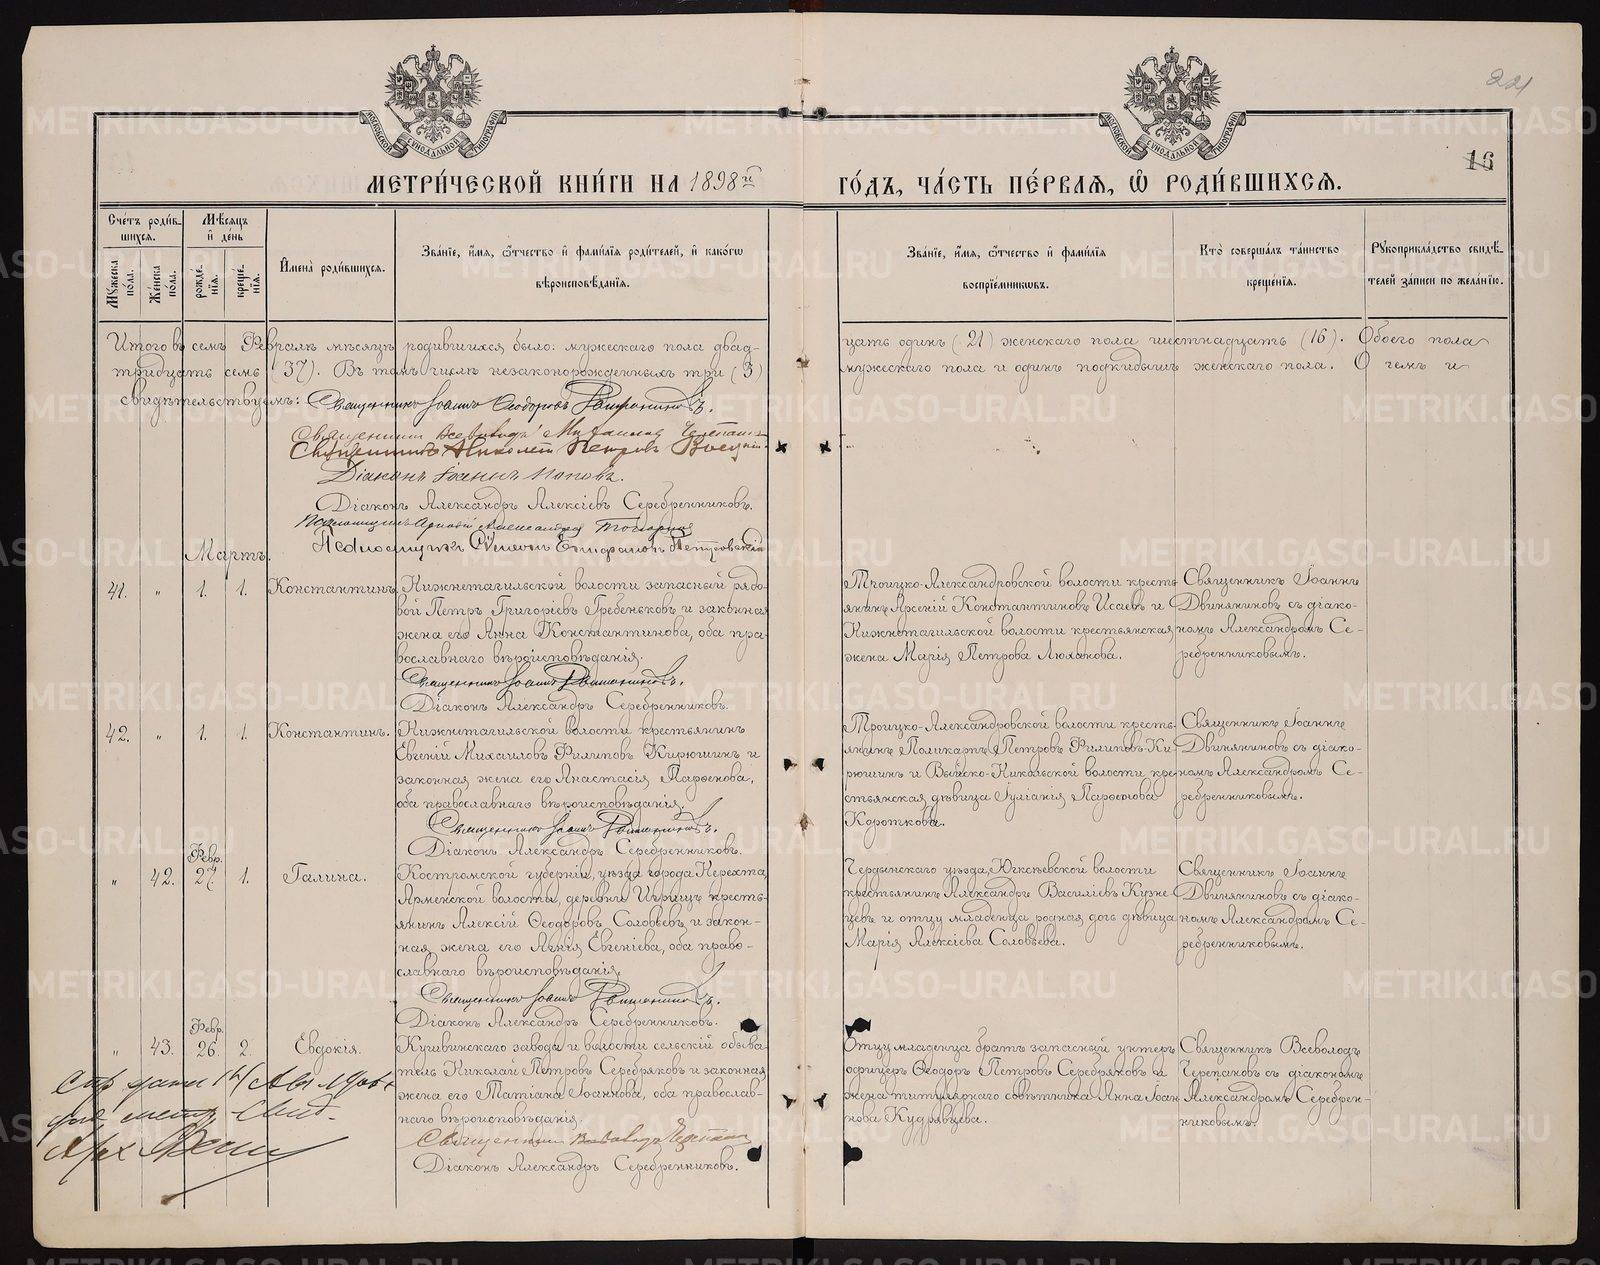 22
16
МОСКОВСКОЙ СѴНОДАЛЬНОЙ ТИПОГРАФІИ
МОСКОВСКОЙ СѴНОДАЛЬНОЙ ТИПОГРАФІИ
МЕТРИ́ЧЕСКОЙ КНИ́ГИ НА 1898 й ГО́ДЪ, ЧА́СТЬ ПЕ́РВАЯ, Ѽ РОДИ́ВШИХСЯ.
Сче́тъ роди́в-
шихся.
Мꙋ́жеска по́ла.
Же́нска по́ла.
Мѣ́сяцъ
и҆ де́нь
рожде́-
нїя.
креще́-
нїя.
И҆мена̀ роди́вшихся.
Зва́нїе, и҆́мя, ѻ҆́тчество и҆ фами́лїя роди́телей, и҆ како́гѡ
вѣроисповѣ́данїя.
Зва́нїе, и҆́мя, ѻ҆́тчество и҆ фами́лїя
воспрїе́мникѡвъ.
Кто̀ соверша́лъ та́инство
креще́нїя.
Рꙋкоприкла́дство свидѣ́-
телей за́писи по жела́нїю.
Итого въ семъ Февралѣ мѣсяцѣ родившихся было: мужескаго пола двад-
цать одинъ (21) женскаго пола шестнадцать (16). Обоего пола
тридцать семь (37). Въ томъ числѣ незаконорожденныхъ три (3)
мужескаго пола и одинъ подкидышъ женскаго пола. О чемъ и
свидѣтельствуемъ: Священникъ Іоаннъ Ѳеодоровъ
Священникъ Всеволодъ Михаиловъ Черепановъ
Священникъ Николай Петровъ
Діаконъ Іоаннъ Поповъ.
Діаконъ Александръ Алексіевъ Серебренниковъ.
Псаломщикъ
Псаломщикъ Симеонъ Епифановъ Петровскій
Мартъ.
41. " 1. 1. Константинъ.
Нижнетагильской волости запасный рядо-
вой Петръ Григоріевъ Гребеньковъ и законная
жена его Анна Константинова, оба пра-
вославнаго вѣроисповѣданія.
Священникъ Іоаннъ
Діаконъ Александръ Серебренниковъ.
Троицко-Александровской волости кресть-
янинъ Арсеній Константиновъ Исаевъ и
Нижнетагильской волости крестьянская
жена Марія Петрова Люханова.
Священникъ Іоаннъ
Двиняниновъ съ діако-
номъ Александромъ Се-
ребренниковымъ.
42. " 1. 1. Константинъ.
Нижнетагильской волости крестьянинъ
Евгеній Михаиловъ Филиповъ Кирюшинъ и
законная жена его Анастасія Парѳенова,
оба православнаго вѣроисповѣданія.
Священникъ Іоаннъ
Діаконъ Александръ Серебренниковъ.
Троицко-Александровской волости кресть-
янинъ Поликарпъ Петровъ Филиповъ-Ки-
рюшинъ и Выйско-Никольской волости кре-
стьянская дѣвица Іуліанія Парѳенова
Короткова.
Священникъ Іоаннъ
Двиняниновъ съ діако-
номъ Александромъ Се-
ребренниковымъ.
" 42. Февр. 27. 1. Галина.
Костромской губерніи, уѣзда города Нерехта,
Арменской волости, деревни Игрицъ кресть-
янинъ Алексій Ѳеодоровъ Соловьевъ и закон-
ная жена его Агнія Евгеніева, оба право-
славнаго вѣроисповѣданія.
Священникъ Іоаннъ
Діаконъ Александръ Серебренниковъ.
Чердынскаго уѣзда, Юксѣевской волости
крестьянинъ Александръ Василіевъ Кузне-
цевъ и отцу младенца родная дочь дѣвица
Марія Алексіева Соловьева.
Священникъ Іоаннъ
Двиняниновъ съ діако-
номъ Александромъ Се-
ребренниковымъ.
" 43. Февр. 26. 2. Евдокія.
Кушвинскаго завода и волости сельскій обыва-
тель Николай Петровъ Серебряковъ и законная
жена его Татіана Іоаннова, оба православ-
наго вѣроисповѣданія.
Священникъ Всеволодъ Черепановъ
Діаконъ Александръ Серебренниковъ.
Отцу младенца братъ запасный унтеръ
офицеръ Ѳеодоръ Петровъ Серебряковъ и
жена титулярнаго совѣтника Анна Іоан-
нова Кудрявцева.
Священникъ Всеволодъ
Черепановъ съ діакономъ
Александромъ Серебрен-
никовымъ.
METRIKI.GASO-URAL.RU